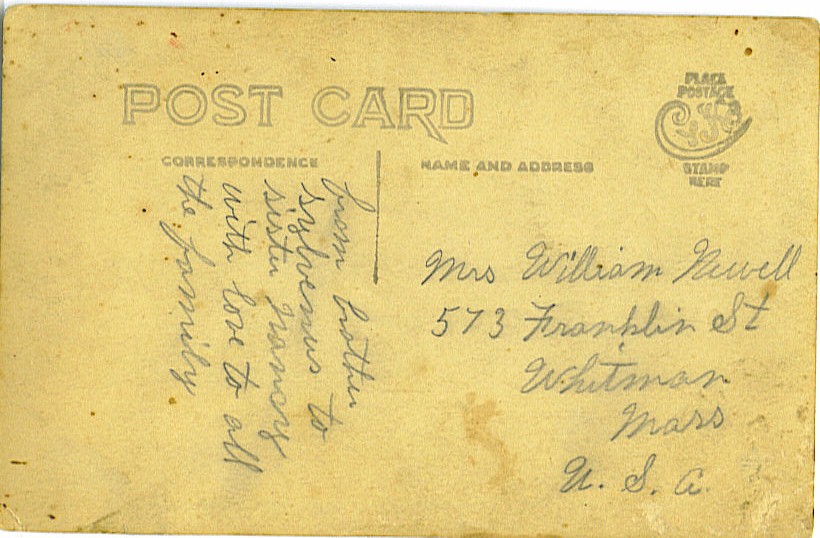 POST CARD
PLACE
POSTAGE
STAMP
HERE
CORRESPONDENCE
NAME AND ADDRESS
from brother
sylvenus to
sister Nancy
with love to all
the family
Mrs William Newell
573 Franklin St
Whitman
Mass
U. S. A.